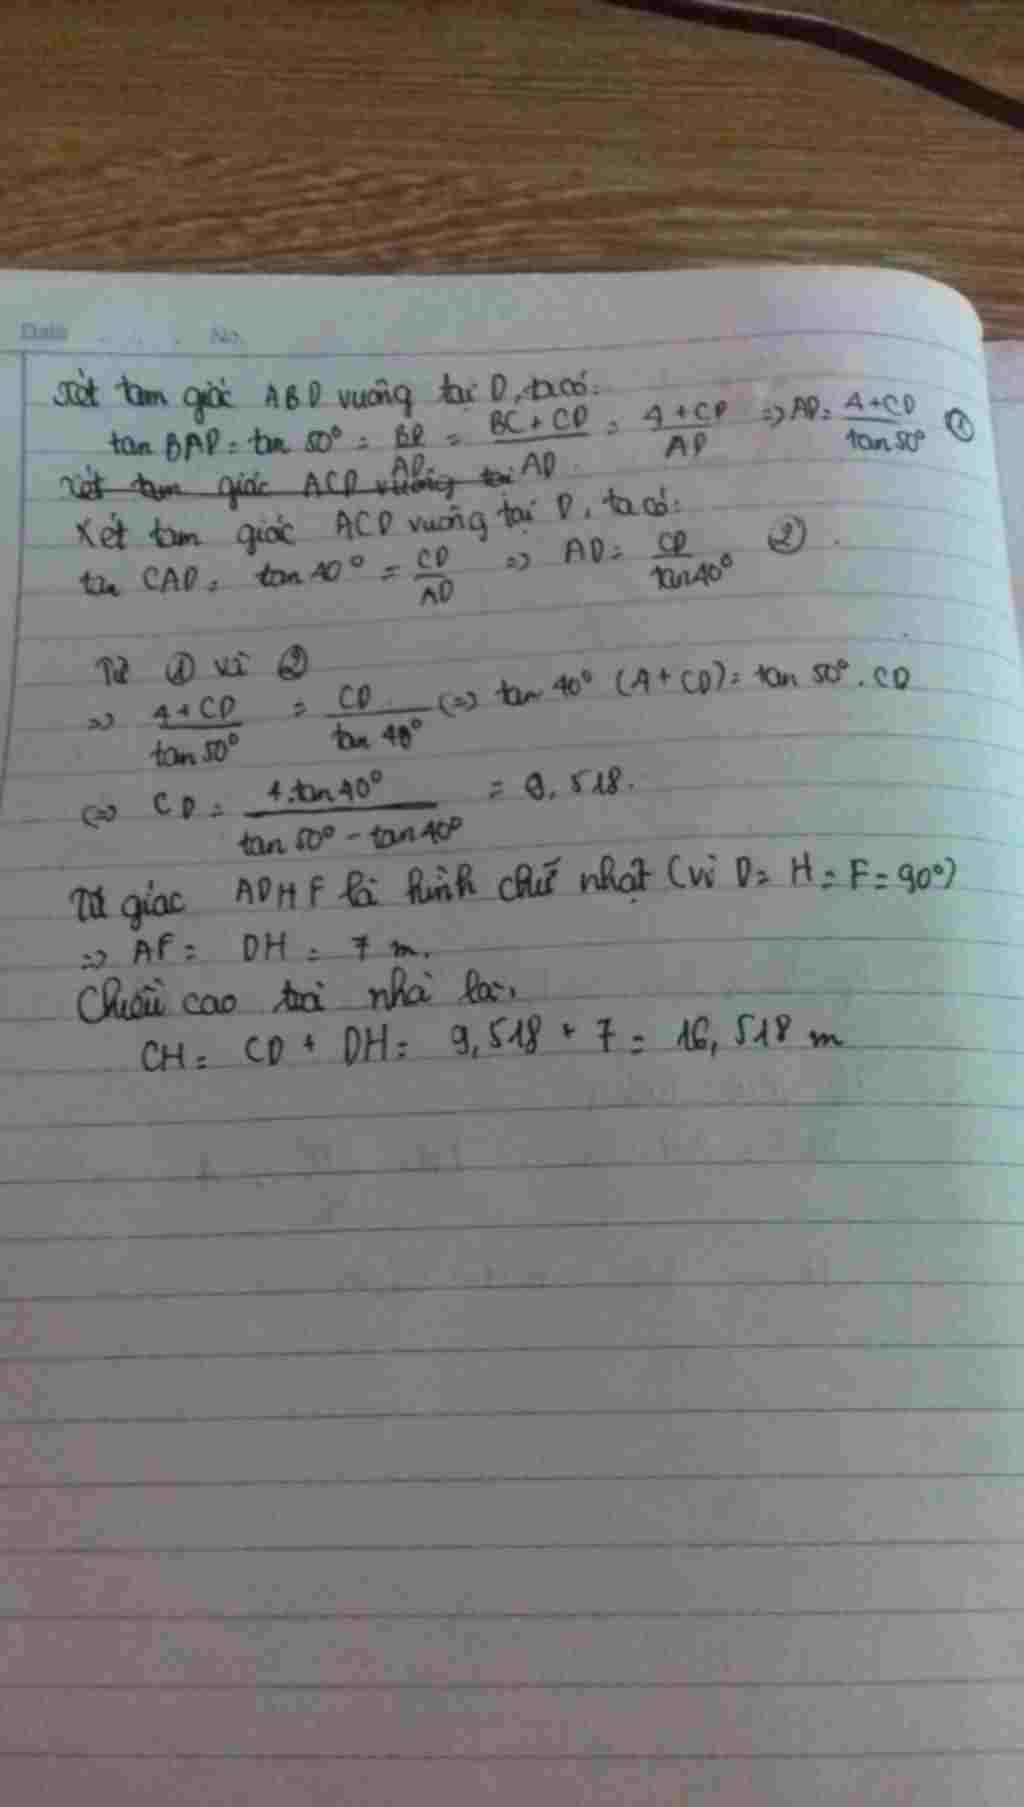 Date No.
Xét tam giác ABD vuông tại D, ta có:
tan BAD = tan 50° = BD/AD = (BC + CD)/AD = (4 + CD)/AD => AD = (4 + CD)/tan 50° ①
Xét tam giác ACD vuông tại
Xét tam giác ACD vuông tại D, ta có:
tan CAD = tan 40° = CD/AD => AD = CD/tan 40° ②
Từ ① và ②
=> (4 + CD)/tan 50° = CD/tan 40° <=> tan 40° (4 + CD) = tan 50° . CD
<=> CD = 4.tan 40°/(tan 50° - tan 40°) = 9,518.
Tứ giác ADHF là hình chữ nhật (vì D = H = F = 90°)
=> AF = DH = 7 m.
Chiều cao toà nhà là:
CH = CD + DH = 9,518 + 7 = 16,518 m